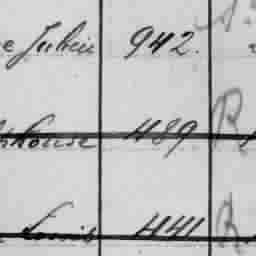 e Julien 942.
phonse 489 R
Louis 441 R